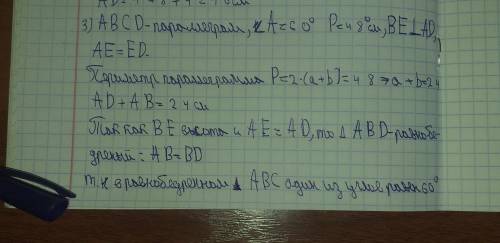 3) ABCD-параллеграм, ∠A=60° P=48см, BE⊥AD,
AE=ED.
Периметр параллеграмма P=2·(a+b)=48 ⇒ a+b=24
AD+AB=24см
Так как BE высота и AE=AD, то △ABD-равнобе-
дреный: AB=BD
т.к в равнобедренном △ ABC один из углов равен 60°